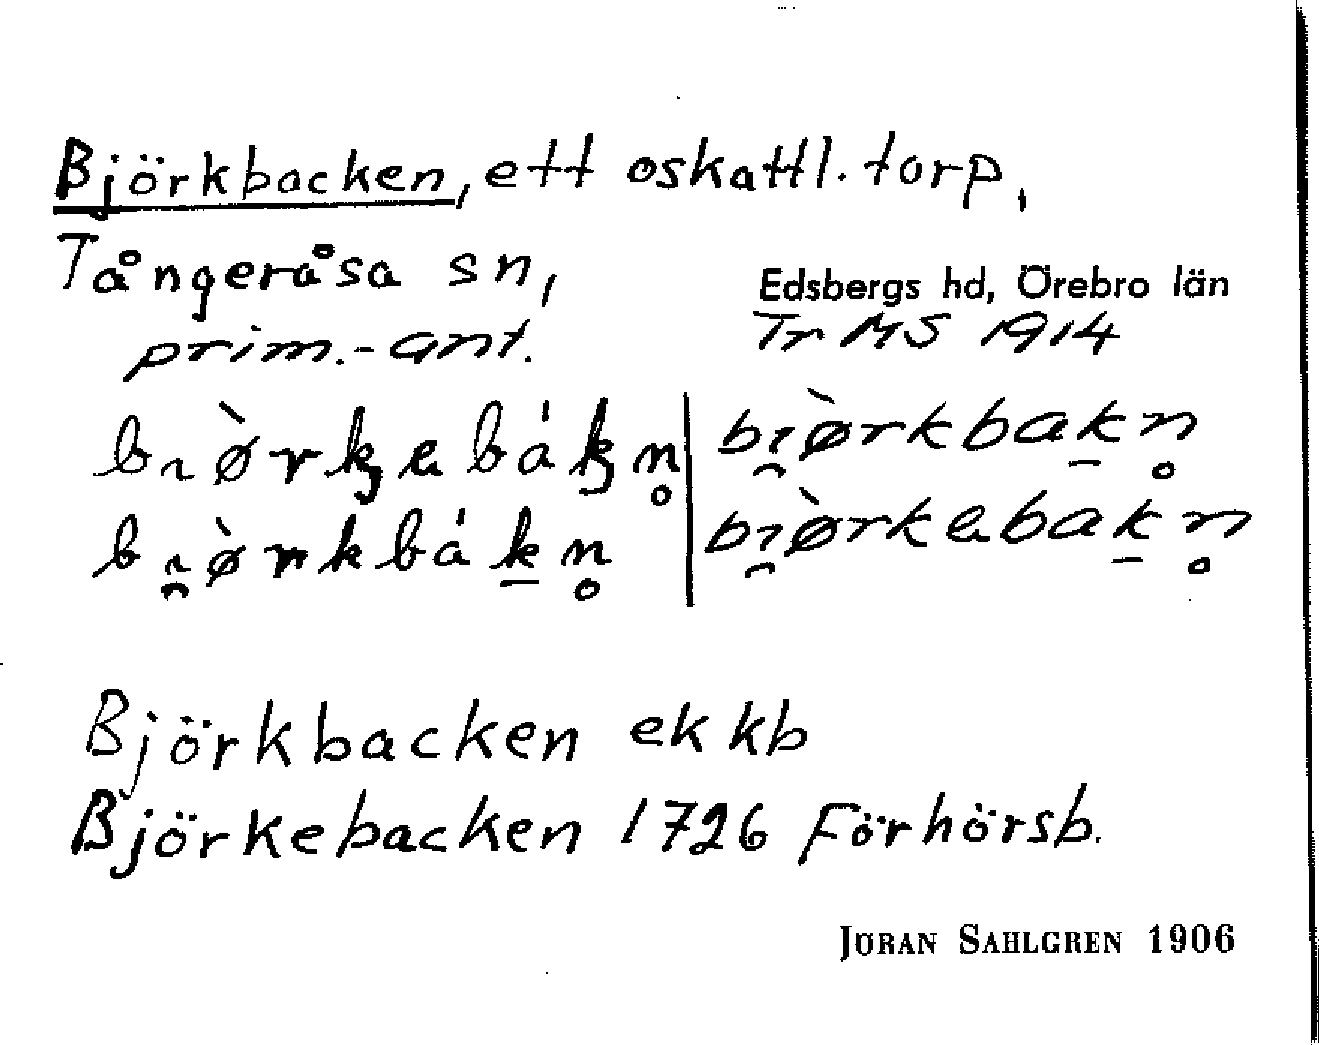 Björkbacken, ett oskattl. torp,
Tångeråsa sn,
Edsbergs hd, Örebro län
prim.-ant.
Tr MS 1914
Björkbacken ek kb
Björkebacken 1726 Förhörsb.
JÖRAN SAHLGREN 1906